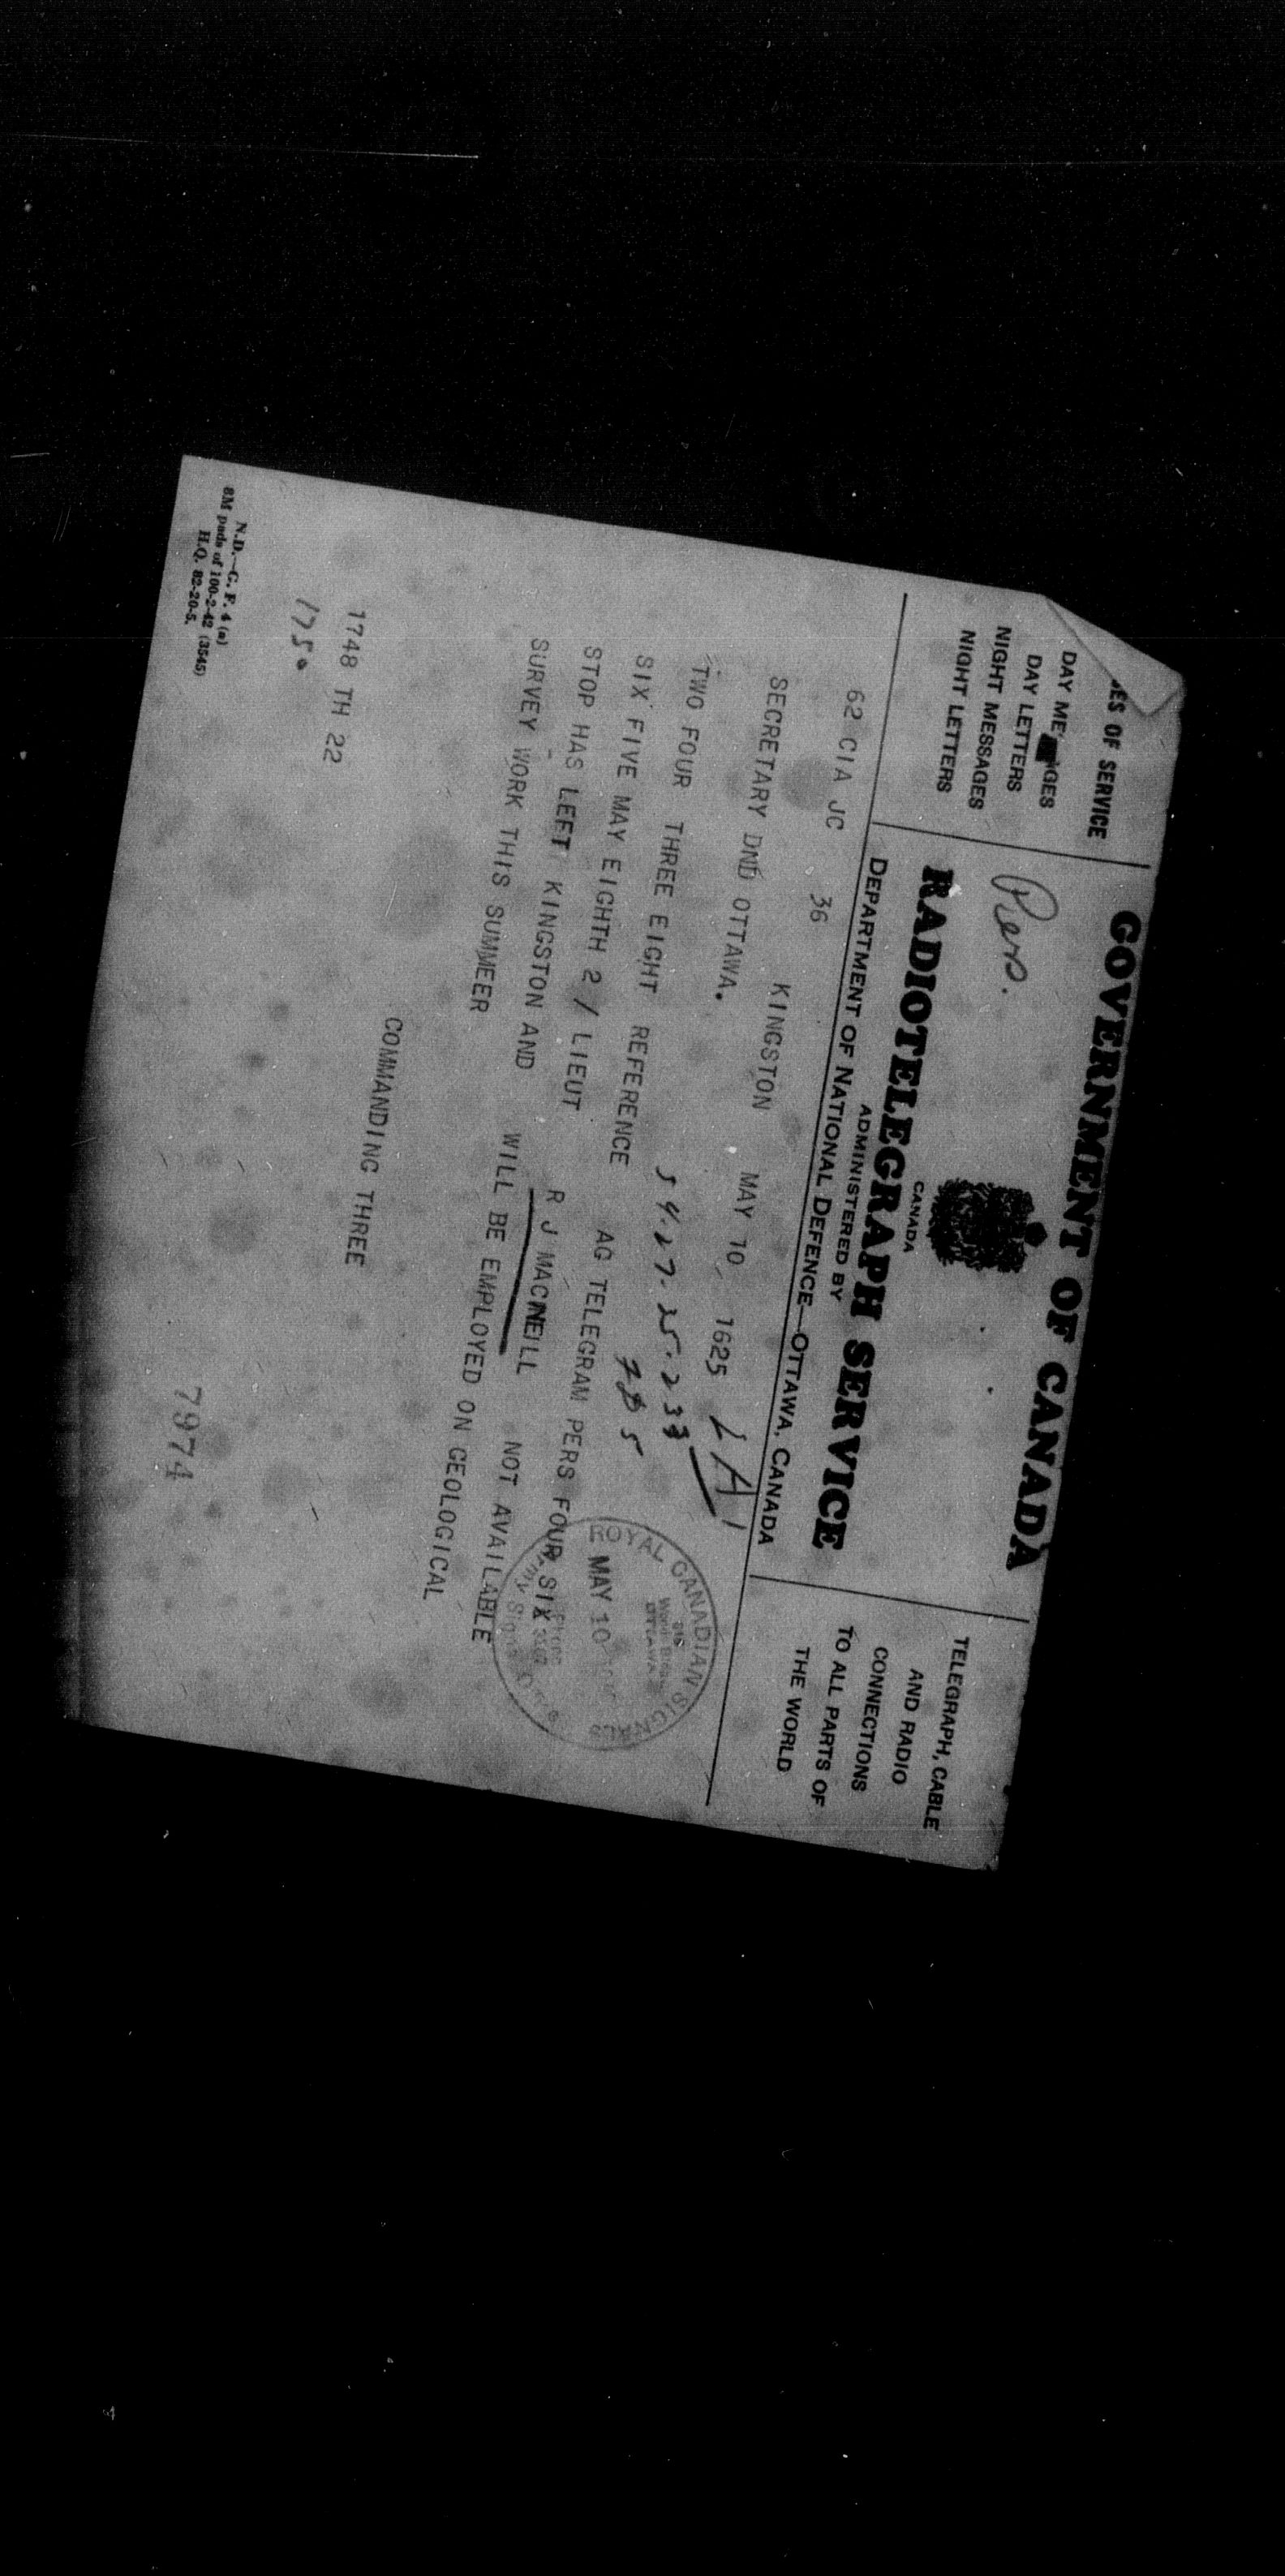 GOVERNMENT OF CANADA
OF SERVICE
DAY LETTERS
NIGHT MESSAGES
NIGHT LETTERS
Pers.
CANADA
RADIOTELEGRAPH SERVICE
ADMINISTERED BY
DEPARTMENT OF NATIONAL DEFENCE—OTTAWA, CANADA
TELEGRAPH, CABLE
AND RADIO
CONNECTIONS
TO ALL PARTS OF
THE WORLD
62 CIA JC 36 KINGSTON MAY 10 1625
SECRETARY DND OTTAWA.
ROYAL CANADIAN SIGNALS
MAY 10
TWO FOUR THREE EIGHT REFERENCE AG TELEGRAM PERS FOUR SIX
SIX FIVE MAY EIGHTH 2 / LIEUT R J MACNEILL NOT AVAILABLE
STOP HAS LEFT KINGSTON AND WILL BE EMPLOYED ON GEOLOGICAL
SURVEY WORK THIS SUMMEER
COMMANDING THREE
1748 TH 22
1750
7974
N.D.—G. F. 4 (a)
8M pads of 100-2-42 (3545)
H.Q. 82-20-5.